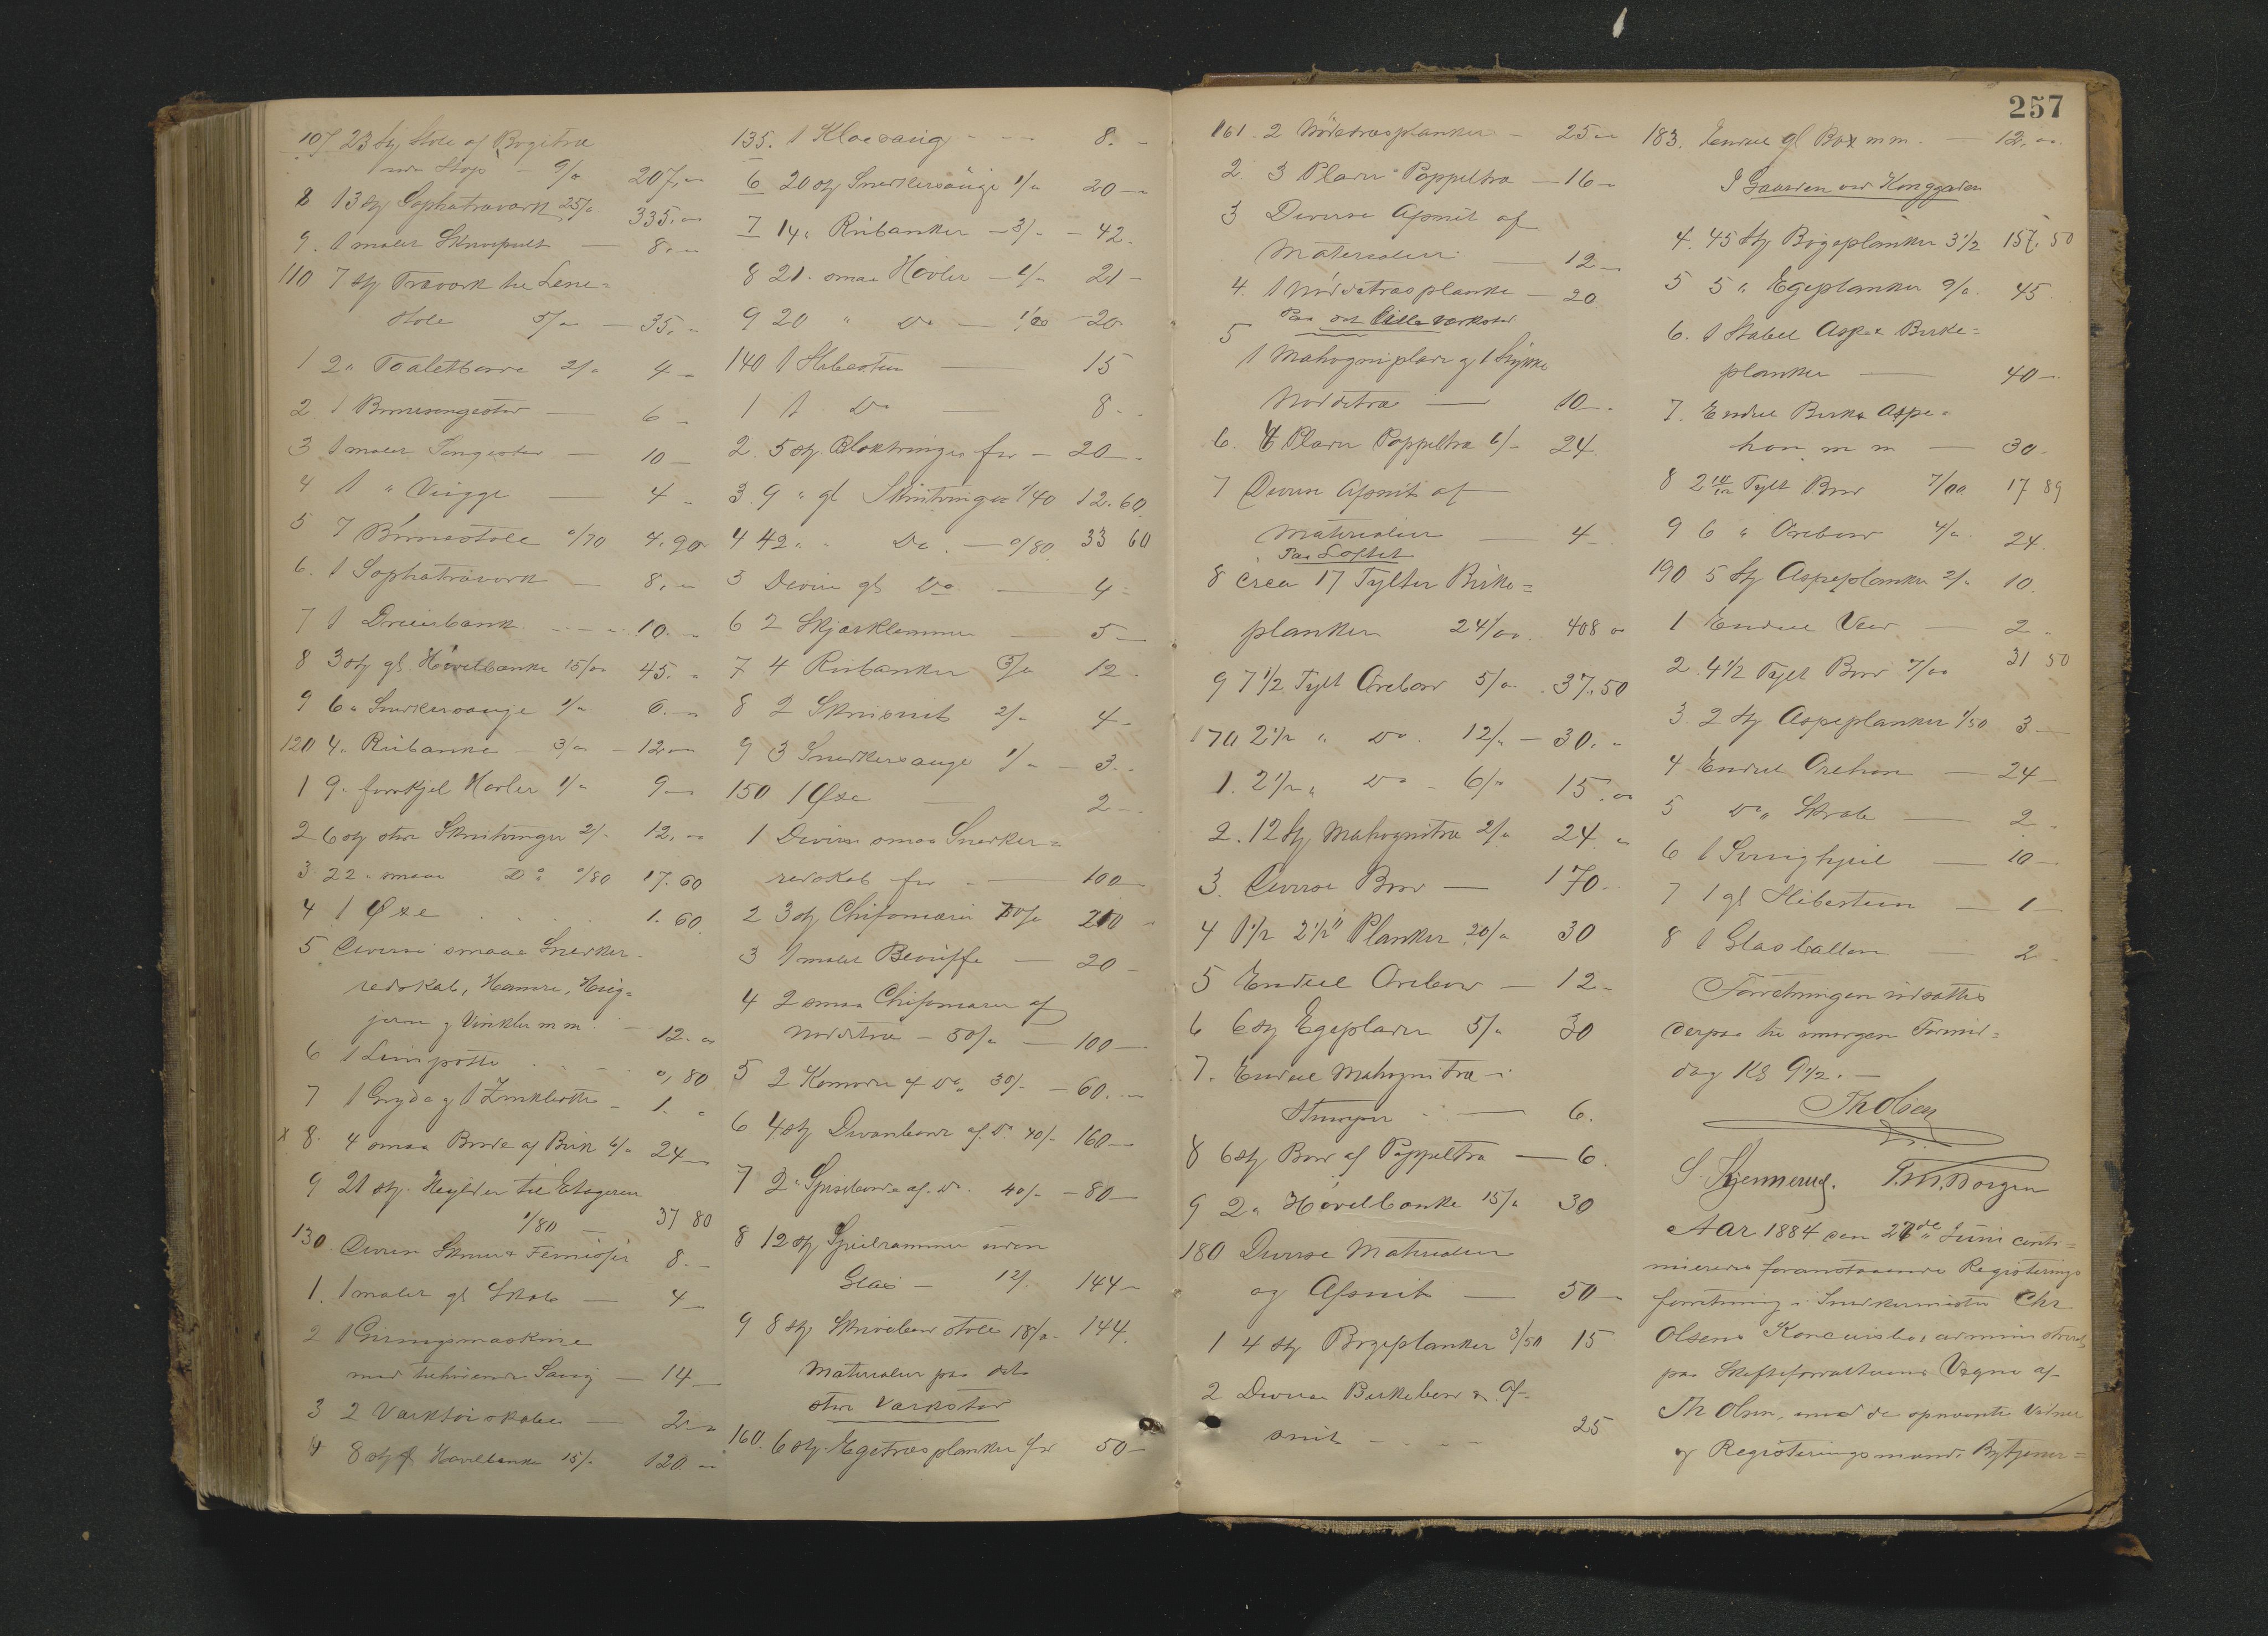 107 23 stk Stole af Bøgetræ
uden Stop - 9/" 207,"
8 13 stk Sophatræværk 25/" 335,"
9. 1 malet Skrivepult — 8."
110 7 stk Træværk til Læne=
stole 5/" — 35."
1 2" Toaletborde 2/" 4 -
2. 1 Børnesengested — 6 -
3 1 malet Sengested — 10 -
4 1 " Vugge — 4 -
5 7 Børnestole "/70 4.90
6. 1 Sophatræværk — 8."
7 1 Dreierbænk - - - 10. -
8 3 stk gl. Høvelbænke 15/00 45. "
9 6 " Snedkersauge 1/" 6. -
120 4" Rubanke - 3/" - 12 -
1 9" forskjel Høvler 1/" 9 -
2 6 stk store Skrutvinger 2/" 12. -
3 22 " smaa Do "/80 17.60
4 1 Øxe . . . . 1.60
5 Diverse smaae Snedker-
redskab, Hamre, Hug=
jern og Vinkler m m. - 12. "
6 1 Limpotte . . . 0,80
7 1 Gryde og 1 Zinkbøtte - 1. "
x 8. 4 smaa Borde af Birk 6/" 24 -
9 21 stk. Hylder til Etagerer
1/80 — 37 80
130 Diverse Skruer & Fernisser 8. -
1. 1 malet gl Skab — 4 -
2 1 Giringsmaskine
med tilhørende Saug — 14 -
3 2 Værktøiskabe — 2 -
4 8 stk Høvelbænke 15/" 120 -
135. 1 Kløvsaug - - - 8. -
6 20 stk Snedkersauge 1/" 20 -
7 14 " Rubanker - 3/" - 42.
8 21 " smaa Høvler - 1/" 21 -
9 20 " Do — 1/00 20
140 1 Slibesten — 15
1 1 Do — 8 - .
2. 5 stk. Bloktvinger for - 20 -
3. 9 " gl Skrutvinger 1/40 12.60
4 42 " " Do. — "/80 33 60
5 Diverse gl Do — 4 -
6 2 Skjærklemmer — 5 -
7 4 Rubanker 3/" 12 -
8 2 Skruesnit 2/" 4 -
9 3 Snedkersauge 1/" - 3. -
150 1 Øxe — 2 -
1 Diverse smaa Snedker=
redskab for — 100 -
2 3 stk Chifonierer 70/" 210 -
3 1 malet Beauffe — 20 -
4 2 smaa Chifonierer af
Nøddetræ - 50/" — 100 -
5 2 Komoder af Do 30/" - 60. -
6. 4 stk Divanborde af Do 40/" 160 -
7 2 " Spiseborde af Do. 40/" - 80 -
8 12 stk Speilrammer uden
Glas - 12/" 144 -
9 8 stk Skrivebordstole 18/" - 144.
Materialier paa det
store Værksted
160. 6 stk. Egetræsplanker for 50 -
257
161. 2 Nødetræsplanker - 25 "
2. 3 Plader Poppeltræ — 16 "
3 Diverse Afsnit af
Materialier — 12 -
4. 1 Nøddetræsplanke — 20
Paa det lille Værksted
5
1 Mahogniplade og 1 Stykke
Nøddetræ — 10 -
6. 4 Plader Poppeltræ 6/" 24.
7 Diverse Afsnit af
Materialier — 4 -
Paa Loftet
8 circa 17 Tylter Birke=
planker 24/00 408 "
9 7 1/2 Tylt Orebord 5/" 37.50
170 2 1/2 " Do. 12/" — 30. "
1. 2 1/2 " Do - 6/" 15. "
2. 12 stk Mahognitræ 2/" 24 "
3. Diverse Bord — 170 -
4 1 1/2 2 1/2" Planker 20/" 30
5 Endeel Orebord — 12 -
6 6 stk Egeplader 5/" 30
7. Endeel Mahognitræ i
Stumper - — 6.
8 6 stk Bord af Poppeltræ — 6.
9 2 " Høvelbænke 15/" 30
180 Diverse Materialier
og Afsnit — 50 -
1 4 stk Bøgeplanker 3/50 15
2 Diverse Birkebord & Af-
snit - - - - 25
183. Endeel gl Bøx m m. — 12."
I Gaarden ved Konggaden
4. 45 Stk Bøgeplanker 3 1/2 157.50
5 5 " Egeplanker 9/" 45.
6. 1 Stabel Asp & Birke=
planker — 40 -
7. Endeel Birk & Aspe-
hon m m — 30 -
8 2 10/12 Tylt Bord 7/00 17 89
9 6 " Orebord 4/" 24.
190 5 stk Aspeplanker 2/" 10.
1 Endeel Ved — 2 -
2. 4 1/2 Tylt Bord 7/00 31 50
3 2 stk Aspeplanker 1/50 3 -
4 Endeel Orehon — 24 -
5 Do " Skrab — 2 -
6 1 Svinghjul — 10 -
7 1 gl Slibesten — 1 -
8 1 Glasballon — 2 -
Forretningen udsattes
derpaa til imorgen Formid=
dag Kl 9 1/2. —
Th Olsen
S. Hjemmerud. T. M. Borgen
Aar 1884 den 27de Juni conti=
nueredes foranstaaende Registerings
forretning i Snedkermester Chr
Olsens Konkursbo, administreret
paa Skifteforvalterens Vegne af
Th Olsen, med de opnævnte Vidner
og Registeringsmænd Bytjener=